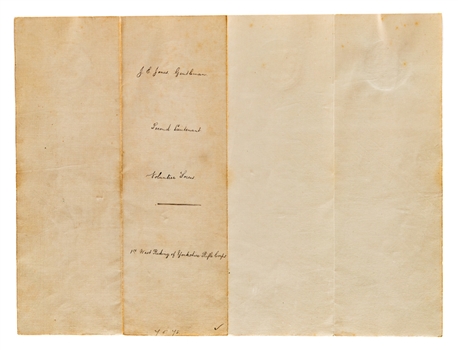 J C Jones Gentleman
Second Lieutenant
Volunteer Force
1st West Riding of Yorkshire Rifle Corps